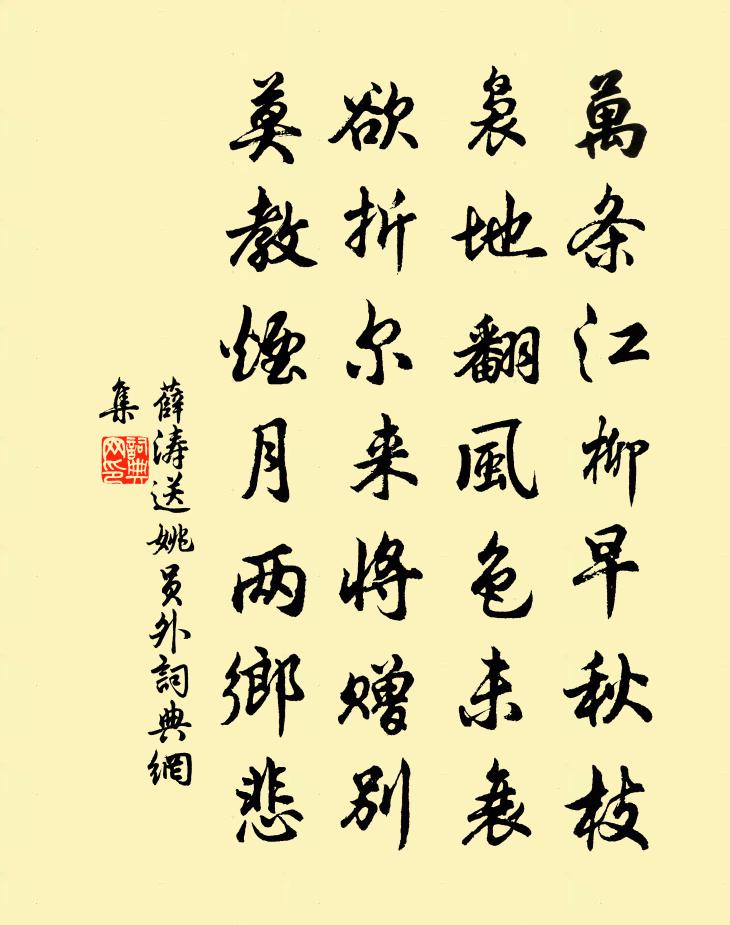 萬条江柳早秋枝
裊地翻風色未衰
欲折尔来将赠别
莫教煙月两鄉悲
薛涛送姚員外詞典網
集
詞典网印